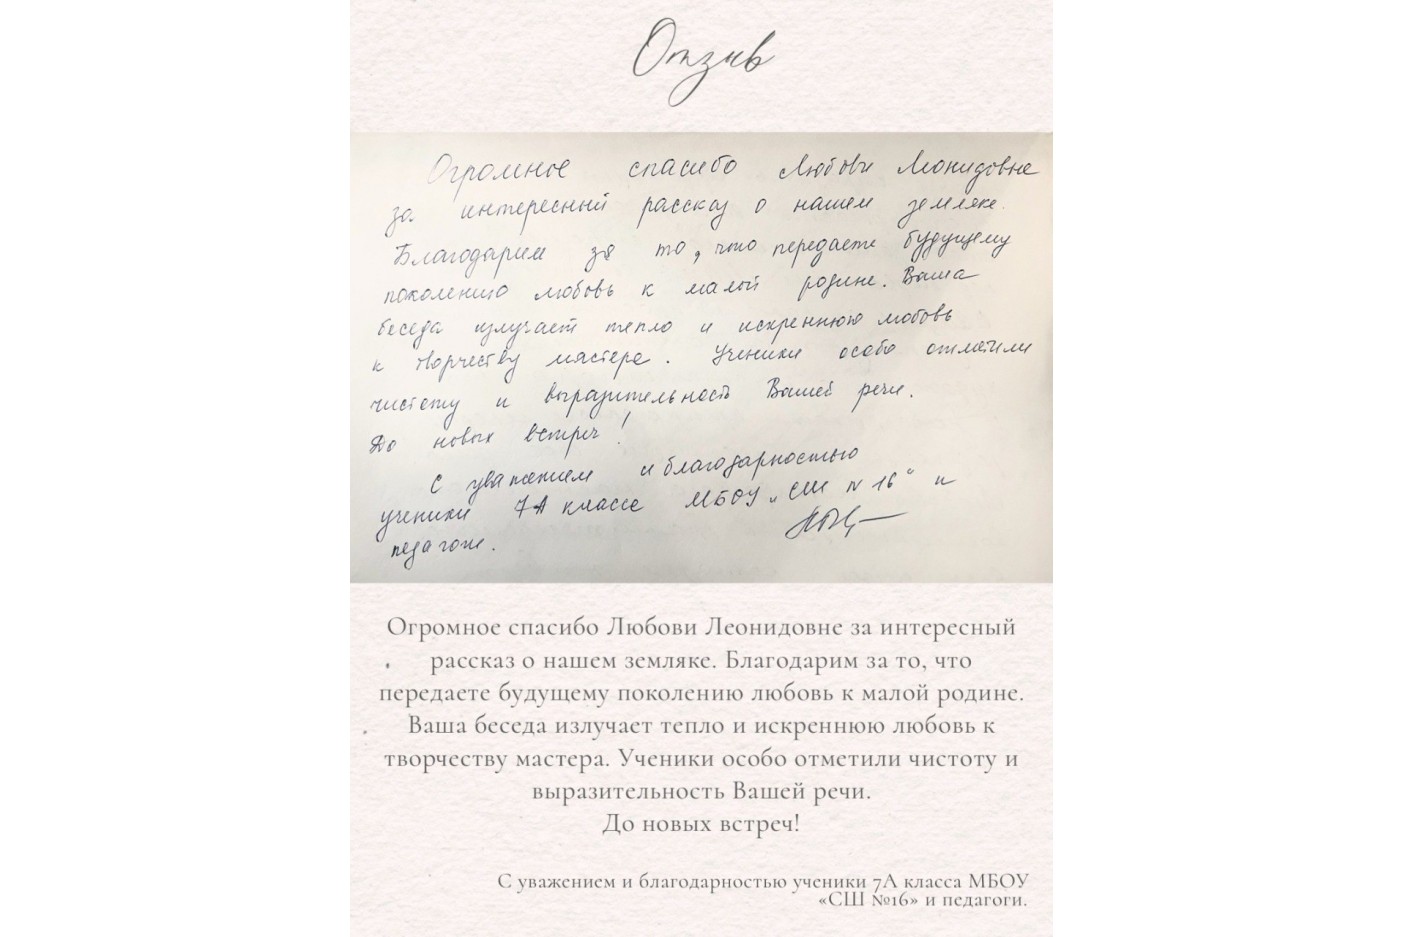 Отзыв
Огромное спасибо Любови Леонидовне
за интересный рассказ о нашем земляке.
Благодарим за то, что передаете будущему
поколению любовь к малой родине. Ваша
беседа излучает тепло и искреннюю любовь
к творчеству мастера. Ученики особо отметили
чистоту и выразительность Вашей речи.
До новых встреч!
С уважением и благодарностью
ученики 7А класса МБОУ „СШ N 16" и
педагоги.
Огромное спасибо Любови Леонидовне за интересный
рассказ о нашем земляке. Благодарим за то, что
передаете будущему поколению любовь к малой родине.
Ваша беседа излучает тепло и искреннюю любовь к
творчеству мастера. Ученики особо отметили чистоту и
выразительность Вашей речи.
До новых встреч!
С уважением и благодарностью ученики 7А класса МБОУ
«СШ №16» и педагоги.